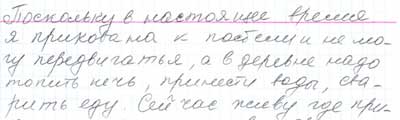 Поскольку в настоящее время
я прикована к постели и не мо-
гу передвигатья, а в деревне надо
топить печь, принести воды, сва-
рить еду. Сейчас живу где при-